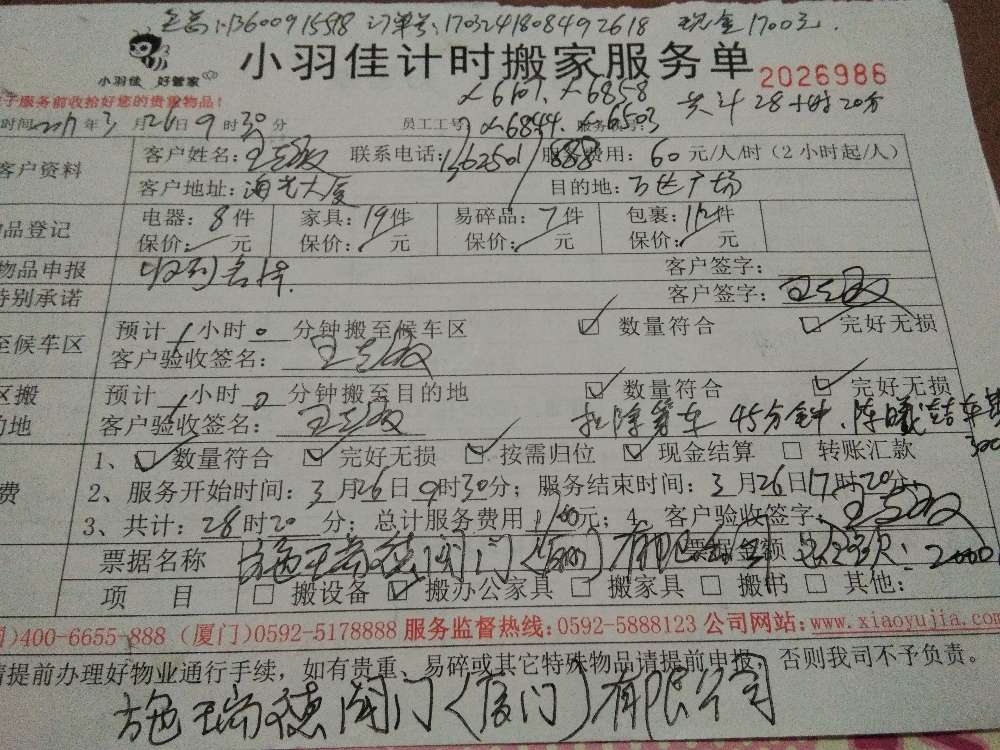 订单号:170324180849 2618 现金1700元.
小羽佳 好管家
小羽佳计时搬家服务单 2026986
子服务前收拾好您的贵重物品!
x6107. x6858
共计28小时20分
时间:2017年3月26日9时30分 员工工号: x6844. x6503
客户资料 客户姓名: 联系电话: 服务费用:60元/人/时(2小时起/人)
客户地址:海光大厦 目的地:万达广场
品登记 电器:8件 家具:19件 易碎品:7件 包裹:112件
保价: 元 保价: 元 保价: 元 保价: 元
物品申报 客户签字:
特别承诺 客户签字:
至候车区 预计1小时0分钟搬至候车区 数量符合 完好无损
客户验收签名:
区搬 预计1小时0分钟搬至目的地 数量符合 完好无损
的地 客户验收签名: 扣除等车45分钟.
1、 数量符合 完好无损 按需归位 现金结算 转账汇款
费 2、服务开始时间:3月26日9时30分;服务结束时间:3月26日17时20分;
3、共计:28时20分;总计服务费用 元;4、客户验收签字:
票据名称 施瑞德阀门(厦门)有限公司 票据金额
项 目 搬设备 搬办公家具 搬家具 搬书 其他:
)400-6655-888 (厦门)0592-5178888 服务监督热线:0592-5888123 公司网站:www.xiaoyujia.com
请提前办理好物业通行手续,如有贵重、易碎或其它特殊物品请提前申报,否则我司不予负责。
施瑞德阀门(厦门)有限公司